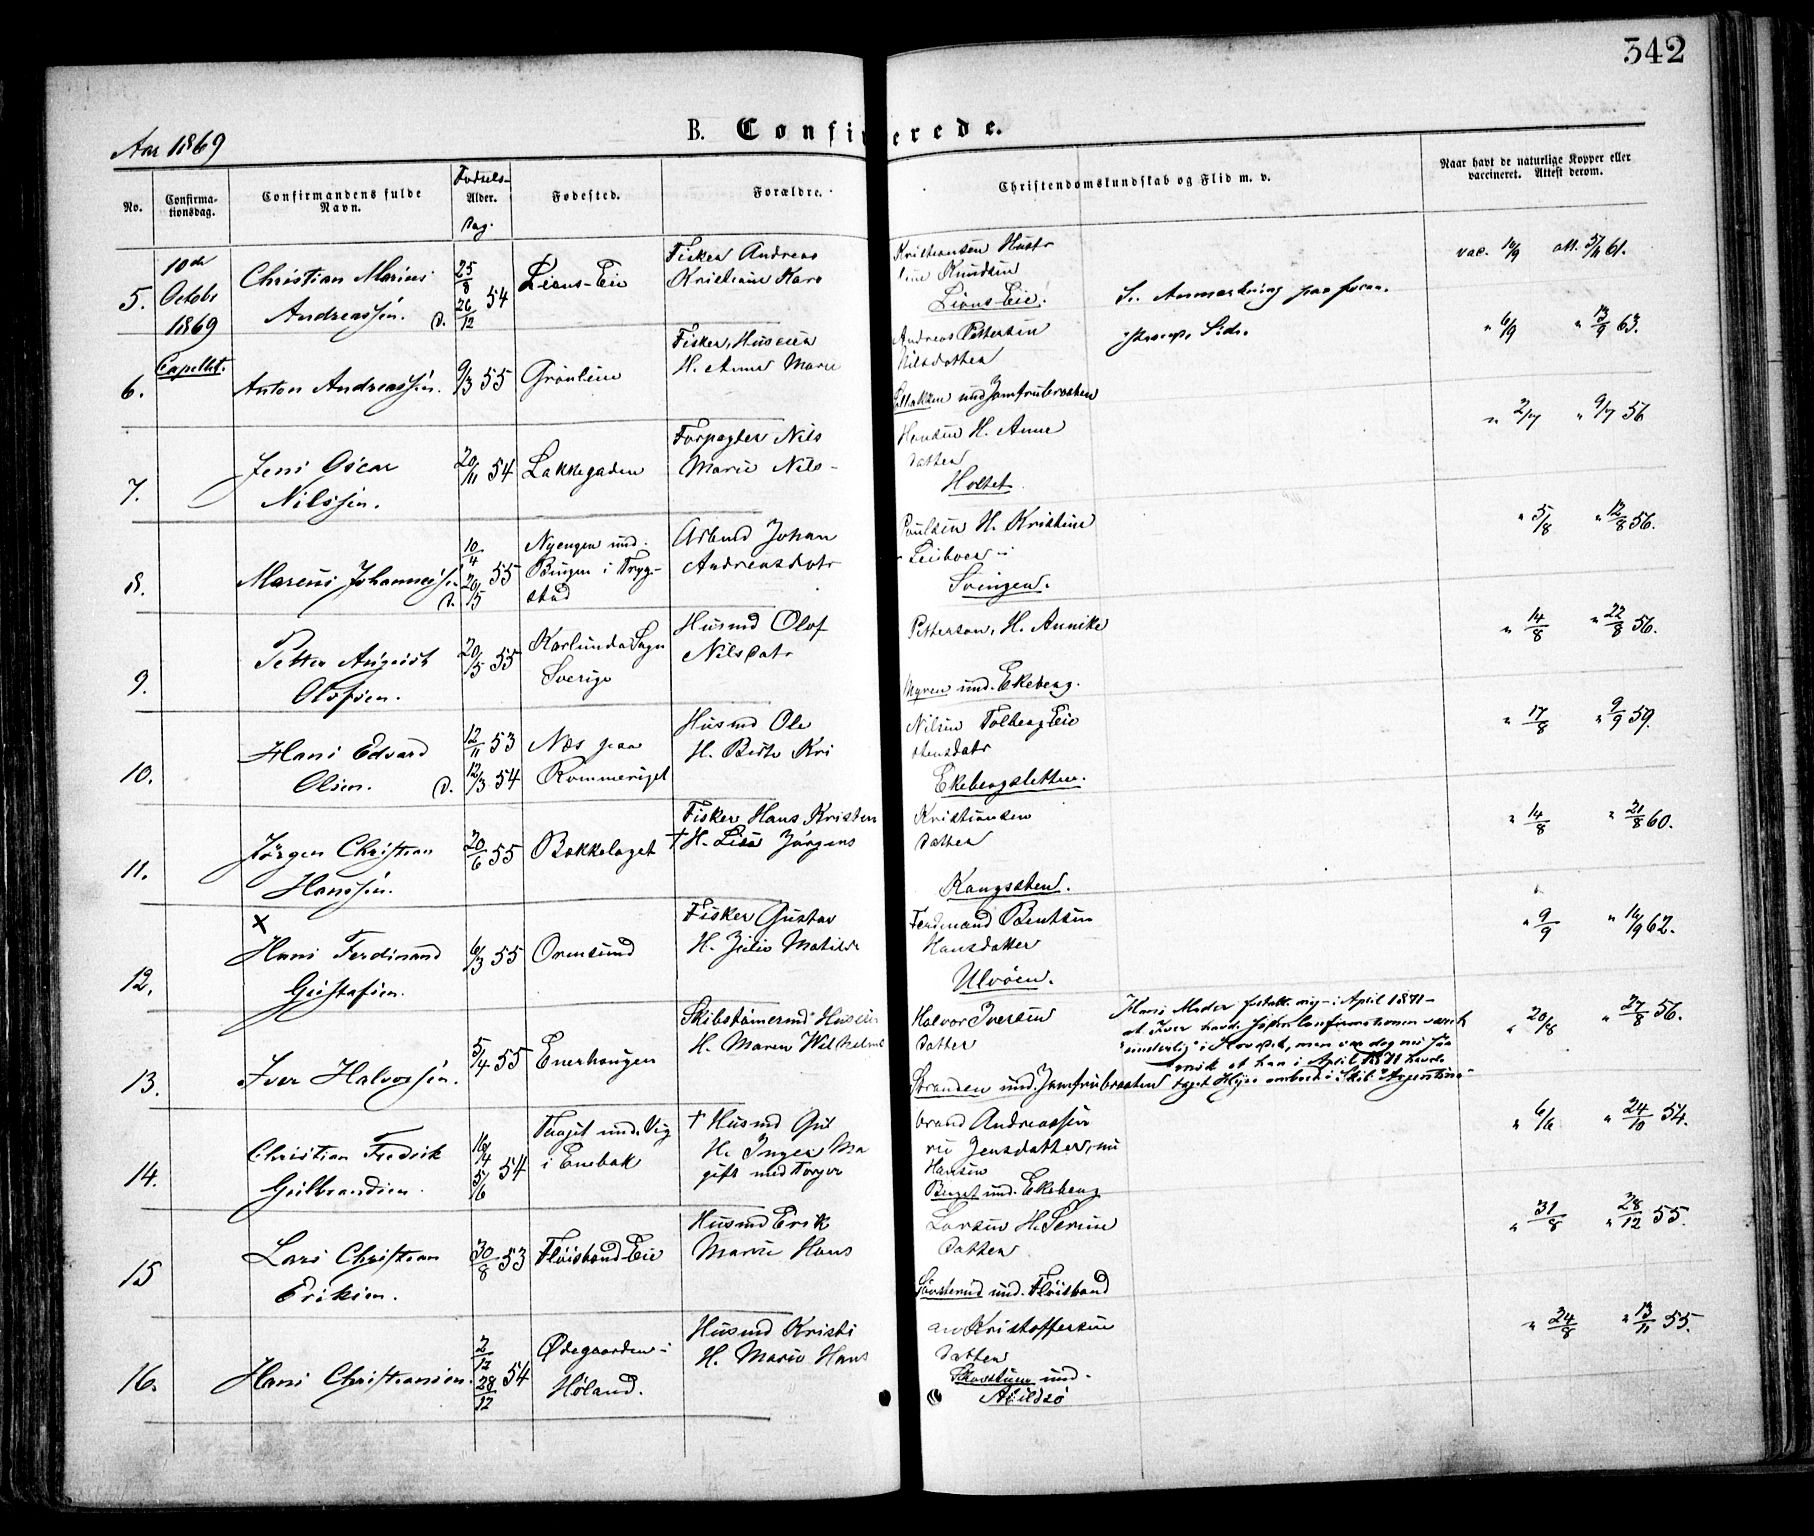 342
Aar 1869
B. Confirmerede.
No.
Confirmationsdag.
Confirmandens fulde Navn.
Fødsels-
Alder.
Dag.
Fødested.
Forældre.
Christendomskundskab og Flid m. v.
Naar havt de naturlige Kopper eller
vaccineret. Attest derom.
10de Octobr 1869 Capellet.
5. Christian Marius Andreassen. 25/8 d. 26/12 54 Lians-Eie
Fisker Andreas Kristiansen Hustr
Kristiane Karoline Knudsen
Lians Eie.
Se Anmærkning paa foran
Side.
vac. att. 61.
6. Anton Andreassen. 9/3 55 Grønlien
Fisker, Huseier Andreas Pettersen
H. Anne Marie Nilsdatter
und Jomfrubraaten
" 6/9 " 13/9 63.
7. Jens Oscar Nilssen. 20/11 54 Lakkegaden
Forpagter Nils Hansen H. Anne
Marie Nils-datter
Holtet
" 2/7 " 9/7 56
8. Marcus Johannessen d. 10/4 20/5 55 Nyengen und. Bingen i Trygstad
Arbmd Johan Poulsen H. Kristine
Andreasdatr
Svingen.
" 5/8 " 12/8 56.
9. Petter August Olofsen. 20/5 55 Karlunda Sogn Sverige
Husmd Olof Petterson, H. Annike
Nilsdatr
Myren und. Ekeberg.
" 14/8 " 22/8 56.
10. Hans Edvard Olsen. 53 d. 12/3 54 Næs paa Rommeriget
Husmd Ole Nilsen Eie
H. Berte Kristensdatr
Ekebergsletten.
" 17/8 " 9/9 59.
11. Jørgen Christian Hanssen. 20/6 55 Bækkelaget
Fisker Hans Kristen Kristiansen
† H. Lisa Jørgensdatter
Kongsten.
" 14/8 " 21/8 60.
12. × Hans Ferdinand Gustafsen. 6/3 55 Ormsund
Fisker Gustav Ferdinand Bentsen
H. Julie Matilde Hansdatter
Ulvøen.
" 9/9 " 62.
13. Iver Halvorsen. 5/4 55 Enerhaugen
Skibstømermd Huseier Halvor Iversen
H. Maren Wilhelmsdatter
Stranden und. Jomfrubraaten
Hans Moder fortalte mig i April 1871
at Iver havde siden Confirmationen været
"underlig" i Hovedet, men var dog nu saa
frisk at han i April 1871 havde
taget Hyre ombord i Skib. "Argentina"
" 20/8 " 27/8 56.
14. Christian Fredrik Gulbrandsen. 16/4 5/6 54 und. Vig i Enebak
† Husmd Gulbrand Andreassen
H. Inger Marie Jensdatter, nu
gift med Torger Hansen
und. Ekeberg
" 6/6 " 24/10 54.
15 Lars Christian Eriksen. 30/8 53 Fløisbond Eie
Husmd Erik Larsen H. Serine
Marie Hansdatter
und. Fløisbond
" 31/8 " 28/12 55.
16. Hans Christiansen. 2/12 28/12 54 Ødegaarden i Høland.
Husmd Kristian Kristoffersen
H. Marie Hansdatter
und. Abildsø
" 24/8 " 13/11 55.